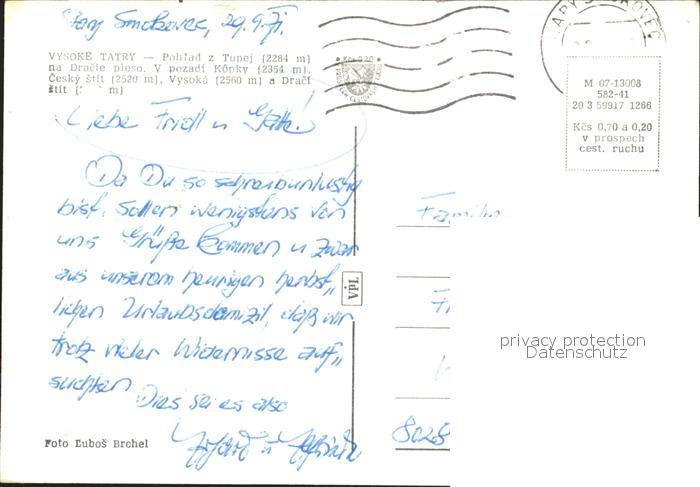 Stary Smokovec, 29.9.71.
VYSOKÉ TATRY — Pohľad z Tupej (2284 m)
na Dračie pleso. V pozadí Kôpky (2354 m),
Český štít (2520 m), Vysoká (2560 m) a Dračí
štít ( m)
Kčs 0,20
M 07-13008
582-41
20 3 59917 1266
Kčs 0,70 a 0,20
v prospech
cest. ruchu
Liebe Friedl u
Da Du so schreibunlustig
bist, sollen wenigstens von
uns Grüße kommen u zwar
aus unserem heurigen herbst„
lichen Urlaubsdomizil, daß wir
trotz vieler Widernisse auf„
suchten
Dies sei es also
u
Familie
VpL
8028
Foto Ľuboš Brchel
privacy protection
Datenschutz